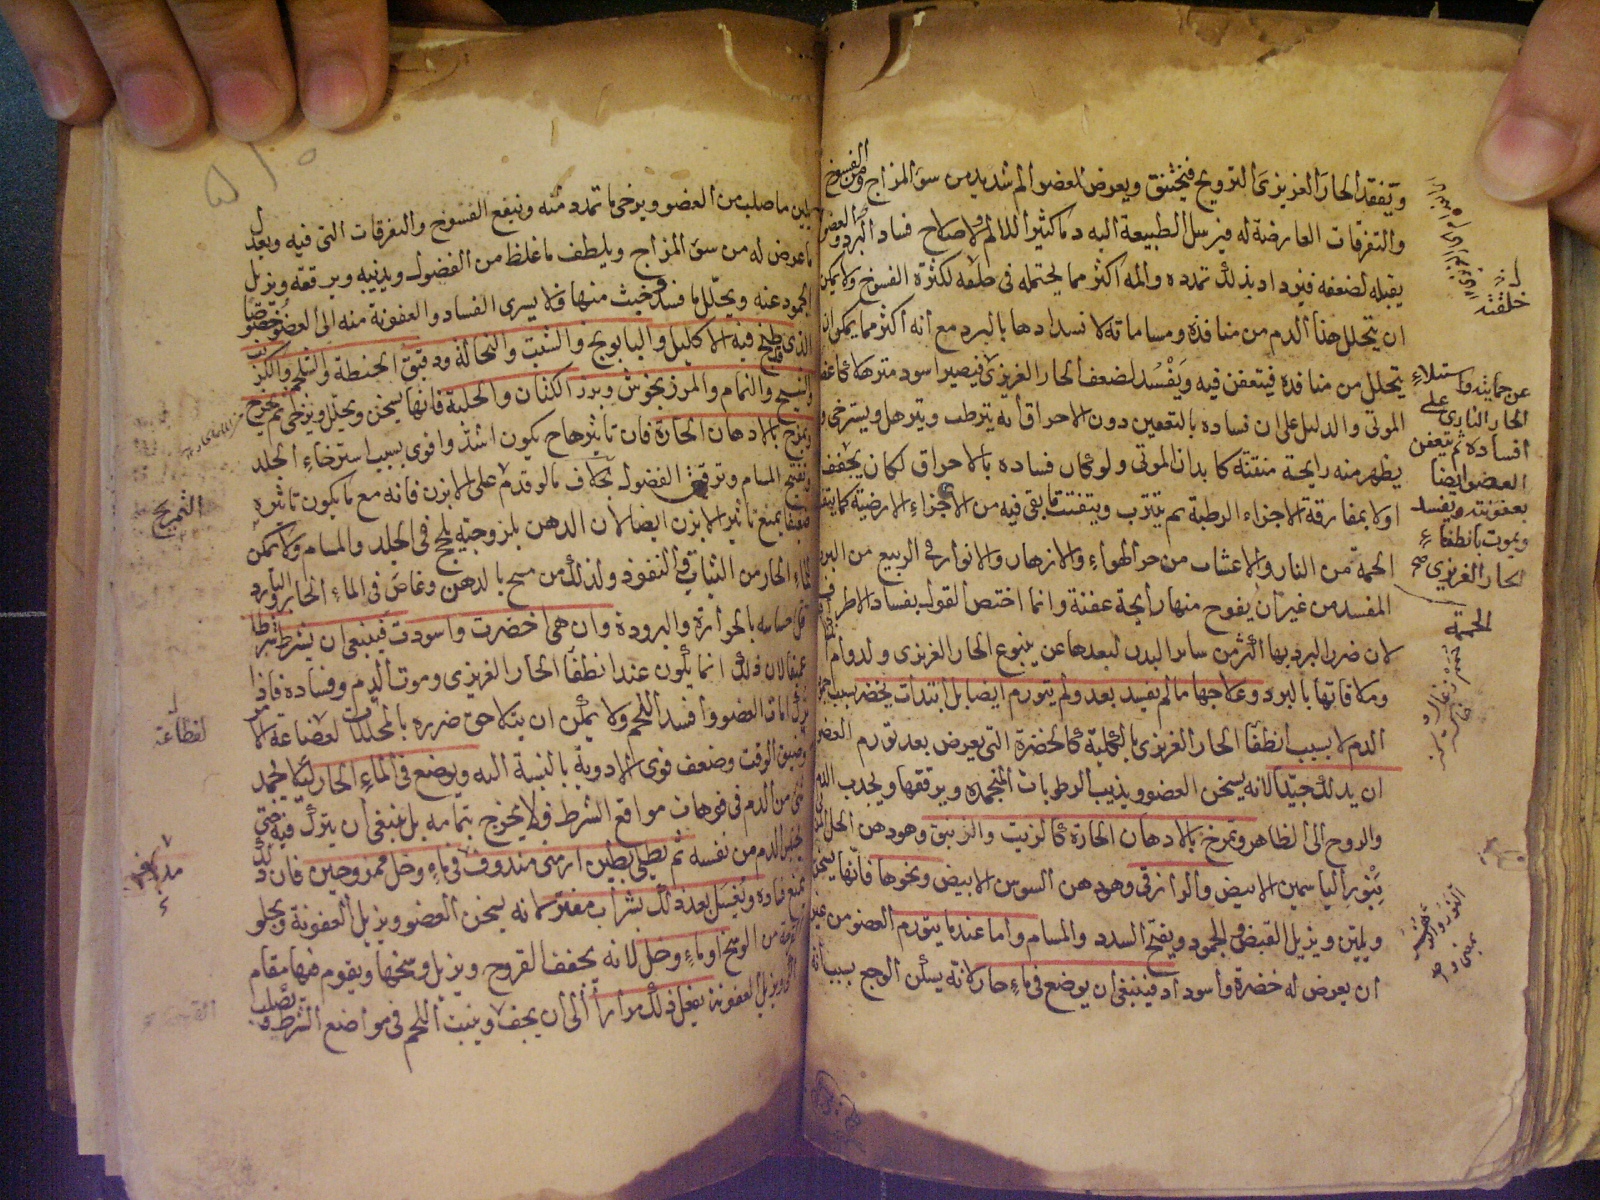 وتفقد الحار الغريزي الترويح فيختنق ويعرض للعضو الم شديد من سوء المزاج ومن الفسوخ
والتفرقات العارضة له فيرسل الطبيعة اليه دما كثيرا للالم ولاصلاح فساد البرد والعضو
يقبله لضعفه فيزداد بذلك تمدده والمه اكثر مما يحتمله في خلقه لكثرة الفسوخ ولا يمكن
ان يتحلل هذا الدم من منافذه ومساماته لانسدادها بالبرد مع انه اكثر مما يمكن ان
يتحلل من منافذه فيتعفن فيه ويفسد لضعف الحار الغريزي فيصير اسود مترهلا كاعضاء
الموتى والدليل على ان فساده بالتعفين دون الاحراق انه يترطب ويترهل ويسترخي و
يظهر منه رايحة منتنة كابدان الموتى ولو كان فساده بالاحراق لكان يجفف
اولا بمفارقة الاجزاء الرطبة ثم يتترب ويتفتت لما بقي فيه من الاجزاء الارضية كما
الحمة من النار والاعشاب من حر الهواء والازهار والانوار في الربيع من البرد
المفسد من غير ان يفوح منها رايحة عفنة وانما اختص القول بفساد الاطراف
لان ضرر البرد بها اكثر من ساير البدن لبعدها عن ينبوع الحار الغريزي ولدوام
وملاقاتها بالبرد وعلاجها ما لم يفسد بعد ولم يتورم ايضا بل ابتدات يخضر بسبب
الدم لا بسبب انطفا الحار الغريزي بالكلية كالخضرة التي يعرض بعد تورم العضو
ان يدلك جيدا لانه يسخن العضو ويذيب الرطوبات المنجمدة ويرققها ويجذب الدم
والروح الى الظاهر وتمرخ بالادهان الحارة كالزيت والزنبق وهو دهن الحل
بنور الياسمين الابيض والرازقي وهو دهن السوسن الابيض ونحوها فانها يسخن
ويلين ويزيل القبض والجمود ويفتح السدد والمسام واما عند ما يتورم العضو من غير
ان يعرض له خضرة واسوداد فينبغي ان يوضع في ماء حار لانه يسكن الوجع بسبب انه
خلقته
عن حمايته واستيلاء
الحار الناري على
افساده ثم يتعفن
العضو ايضا
بعفونته ويفسد
ويموت بانطفاء
الحار الغريزي صح
يلين ما صلب من العضو ويرخي ما تمدد منه وينفع الفسوخ والتفرقات التي فيه ويعدل
ما عرض له من سوء المزاج ويلطف ما غلظ من الفضول ويذيبه ويرققه ويزيل
الجمود عنه ويحلل ما فسد وخبث منها فلا يسري الفساد والعفونة منه الى العضو خصوصا
الذي طبخ فيه الاكليل والبابونج والشبت والنخالة ودقيق الحنطة والشلجم والكرنب
والشيح والنمام والمرزنجوش وبزر الكتان والحلبة فانها يسخن ويحلل ويرخي ثم يخرج
ويمرخ بالادهان الحارة فان تاثيرها ح يكون اشد واقوى بسبب استرخاء الجلد
وتفتح المسام وترقق الفضول بخلاف ما لو قدم على الابزن فانه مع ما يكون تاثيره
ضعيفا يمنع تاثير الابزن ايضا لان الدهن بلزوجته يلحج في الجلد والمسام ولا يمكن
الماء الحار من الثبات والنفوذ ولذلك من مسح بالدهن وغاص في الماء الحار او البارد
قل احساسه بالحرارة والبرودة وان هي اخضرت واسودت فينبغي ان يشرط شرطا
عميقا لان ذلك انما يكون عند انطفا الحار الغريزي وموت الدم وفساده فاذا
ترك امات العضو وافسد اللحم ولا يمكن ان يتلاحق ضرره بالمحللات
وضيق الوقت وضعف قوى الادوية بالنسبة اليه ويوضع في الماء الحار لئلا يجمد
شئ من الدم في فوهات مواقع الشرط فلا يخرج بتمامه بل ينبغي ان يترك فيه حتى
يحتبس الدم من نفسه ثم يطلي بطين ارمني مندوف في ماء وخل ممزوجين فان ذلك
يمنع فساده ويغسل بعد ذلك بشراب مفتر لانه يسخن العضو ويزيل العفونة ويجلو
من الوسخ او ماء وخل لانه يجفف القروح ويزيل وسخها ويقوم فيها مقام
ويزيل العفونة يفعل ذلك مرارا الى ان يجف وينبت اللحم في مواضع الشرط ويصلب
التمريخ
لفظاعة